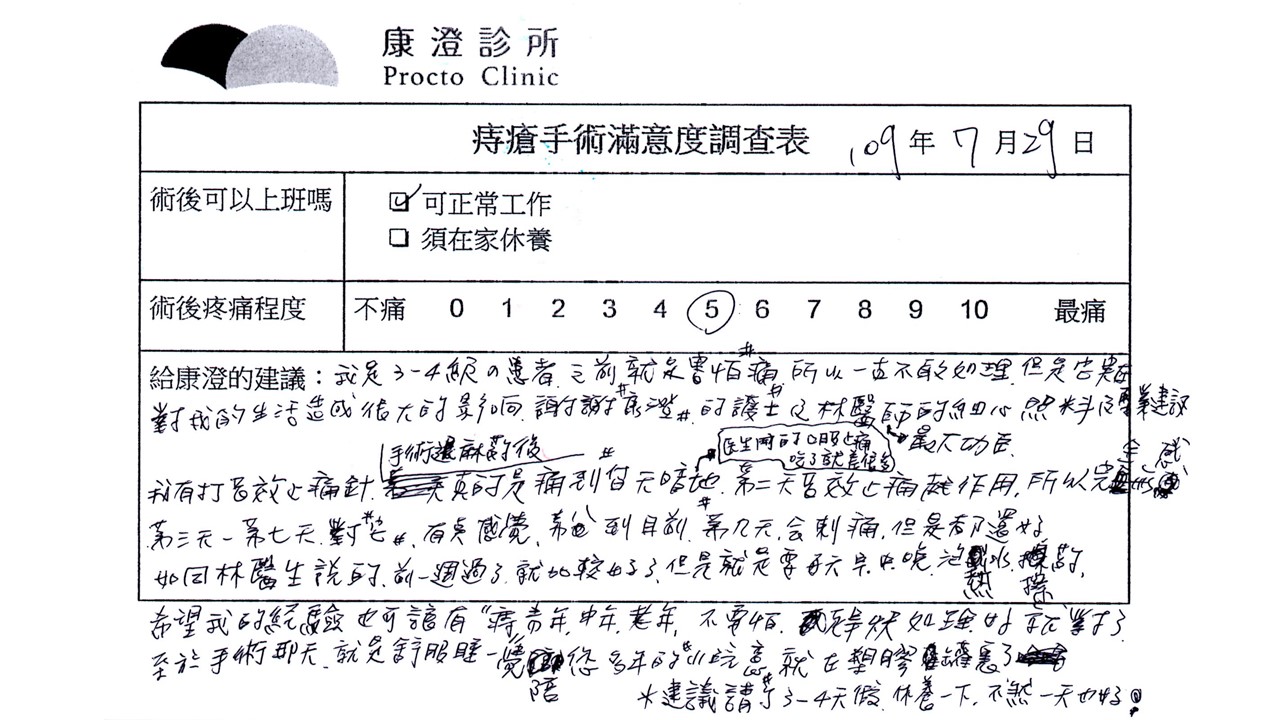 康澄診所
Procto Clinic
痔瘡手術滿意度調查表 109年7月29日
術後可以上班嗎
可正常工作
須在家休養
術後疼痛程度 不痛 0 1 2 3 4 5 6 7 8 9 10 最痛
給康澄的建議：我是3-4級の患者.之前就是害怕痛.所以一直不敢處理.但是它
對我的生活造成很大的影响.謝謝康澄的護士及林醫師的細心照料及專業建議
手術退麻醉後
醫生開的口服止痛
吃了就差很多
最大功臣
我有打長效止痛針.真的是痛到昏天暗地.第二天長效止痛起作用,所以完全
第三天-第七天.對它有點感覺.到目前.第九天.会刺痛,但是都還好
如同林醫生說的.前一週過了.就比較好了.但是就是要每天早中晚.泡熱水.擦藥,
希望我的經驗也可讓有"痔青年.中年.老年,不要怕.趕快處理.好就對了.
至於手術那天.就是舒服睡一覺 陪您多年的 就在塑膠罐裏了
*建議請了3-4天假.休養一下.不然一天也好。